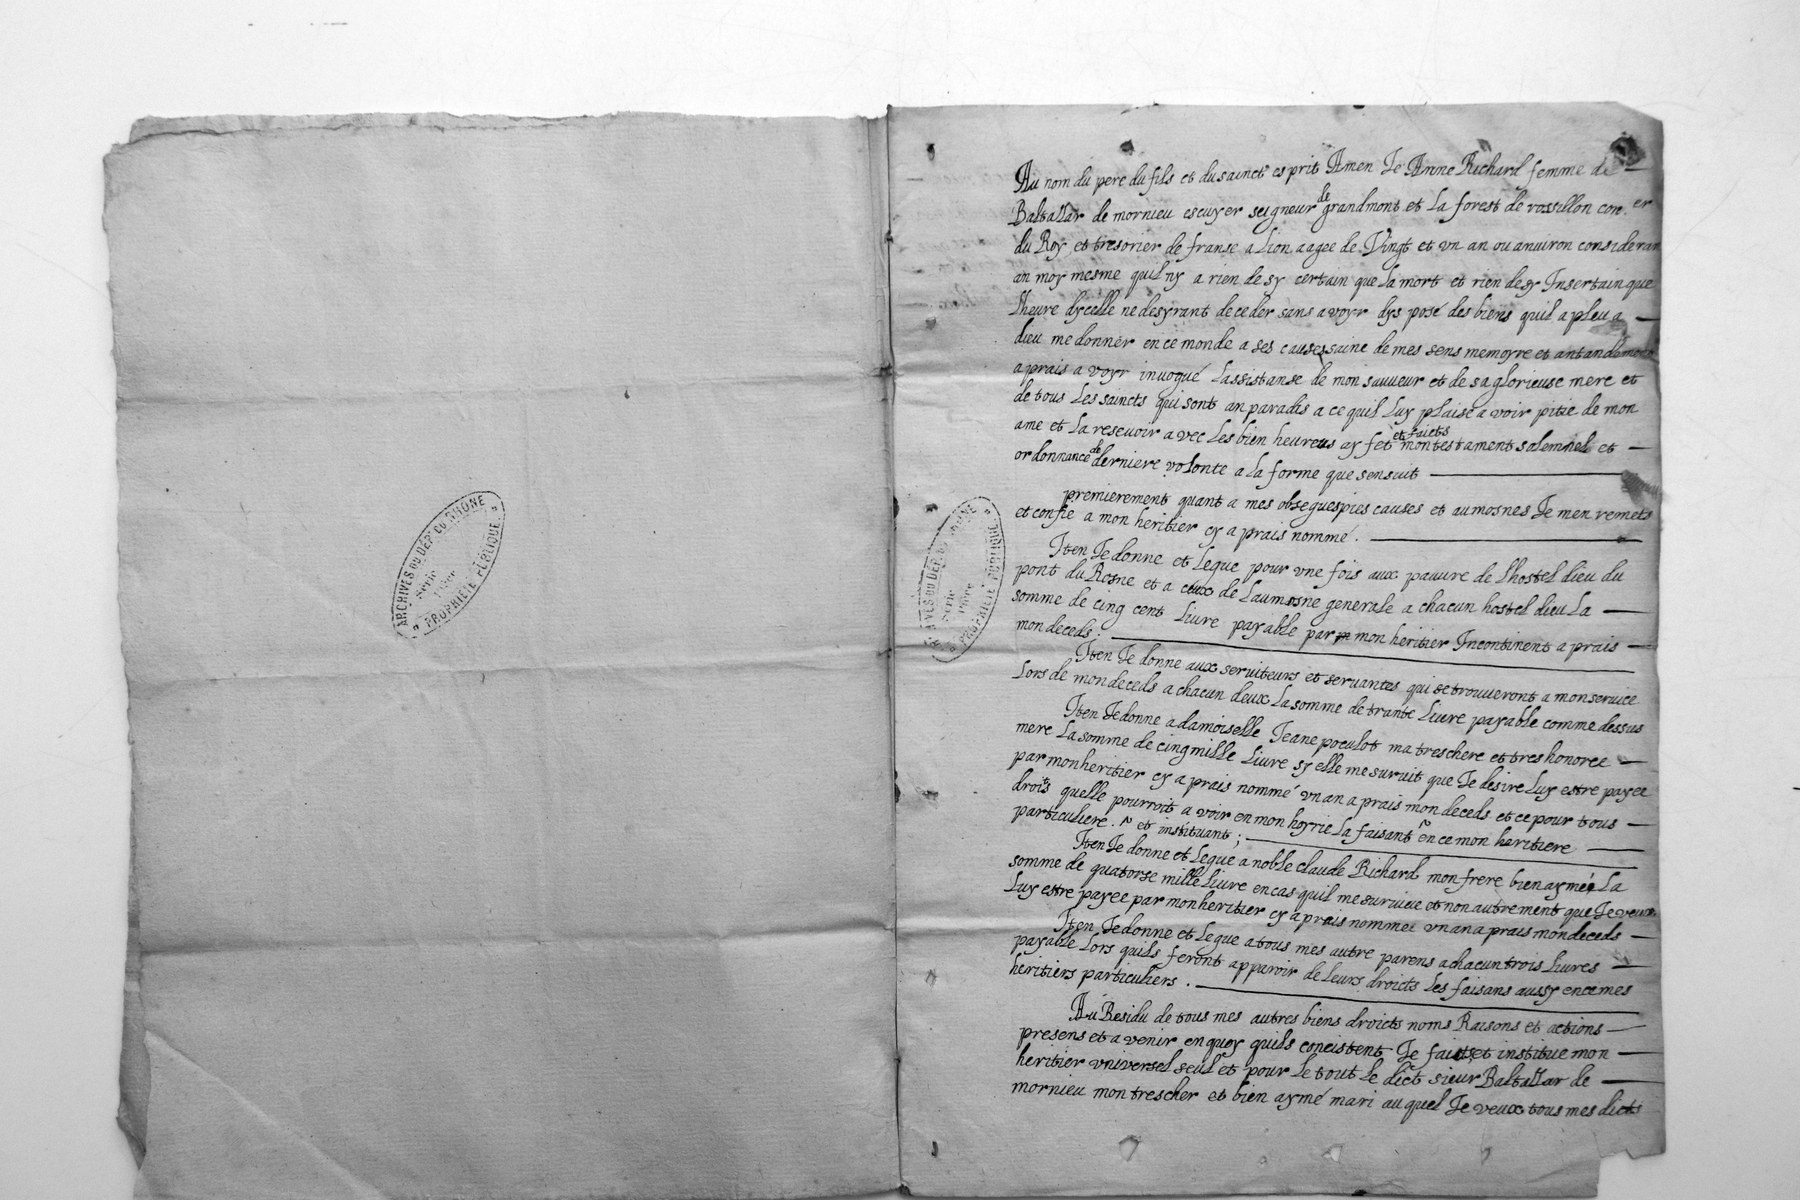 ARCHIVES DU DÉP. DU RHÔNE
Série
PROPRIÉTÉ PUBLIQUE
Série
PROPRIÉTÉ PUBLIQUE
Au nom du pere du fils et du sainct esprit Amen Je Anne Richard femme de
Baltasar de mornieu escuyer seigneur de grandmont et la forest de rossillon con.er
du Roy et tresorier de franse a Lion aagee de Vingt et vn an ou anuiron considerant
an moy mesme quil ny a rien de sy certain que la mort et rien de sy Insertain que
lheure dycelle ne desyrant deceder sans avoyr dysposé des biens quil a pleu a
dieu me donner en ce monde a ses causes saine de mes sens memoyre et antandement
aprais avoyr inuoqué lassistanse de mon sauueur et de sa glorieuse mere et
de tous les saincts qui sont an paradis a ce quil luy plaise avoir pitie de mon
ame et la reseuoir avec les bien heureus ay fet et faicts mon testament solemnel et
ordonnance de derniere volonte a la forme que sensuit
premierement quant a mes obseques pies causes et aumosnes Je men remets
et confie a mon heritier cy aprais nommé.
Iten Je donne et legue pour vne fois aux pauure de lhostel dieu du
pont du Rosne et a ceux de laumosne generale a chacun hostel dieu la
somme de cinq cent liure payable par mon heritier Incontinent aprais
mon deceds:
Iten Je donne aux seruiteurs et seruantes qui se trouueront a mon seruice
lors de mon deceds a chacun deux la somme de trante liure payable comme dessus
Iten Je donne a damoiselle Jeane poculot ma treschere et tres honoree
mere la somme de cinq mille liure sy elle me suruit que Je desire luy estre payee
par mon heritier cy aprais nommé vn an aprais mon deceds et ce pour tous
droits quelle pourroit avoir en mon hoyrie la faisant en ce mon heritiere
particuliere. et instituant;
Iten Je donne et legue a noble claude Richard mon frere bien aymé la
somme de quatorse mille liure en cas quil me suruiue et non autrement que Je veux
luy estre payee par mon heritier cy aprais nommé vn an aprais mon deceds
Iten Je donne et legue a tous mes autre parens a chacun trois liures
payable lors quils feront apparoir de leurs droicts les faisans aussy en ce mes
heritiers particuliers.
Au Residu de tous mes autres biens droicts noms Raisons et actions
presens et a venir en quoy quils consistent Je fais et institue mon
heritier vniversel seul et pour le tout le dict sieur Baltasar de
mornieu mon trescher et bien aymé mari auquel Je veux tous mes dicts